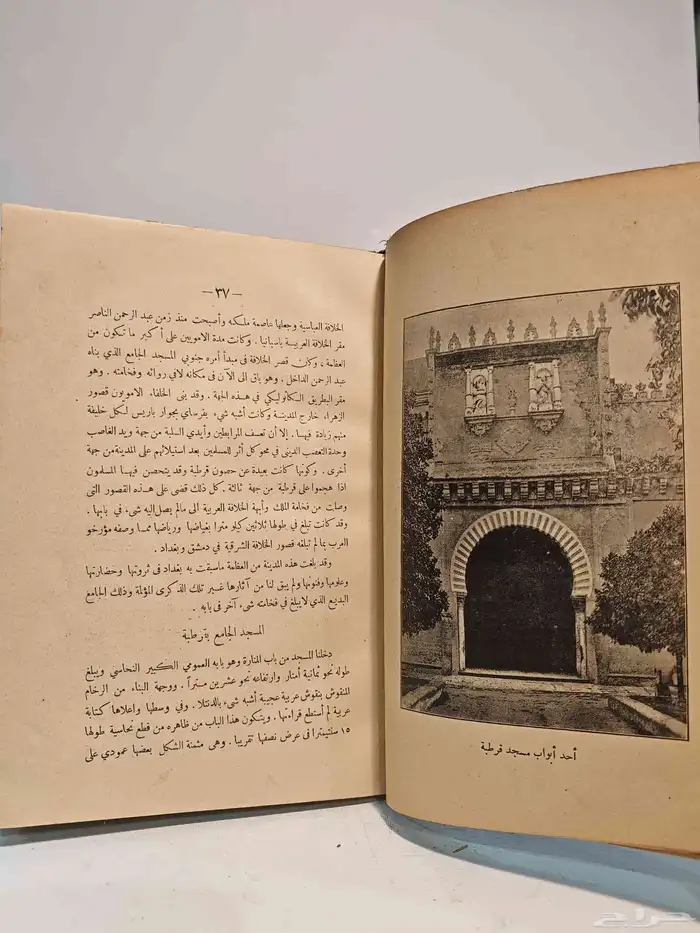 أحد أبواب مسجد قرطبة
— ٣٧ —
الخلافة العباسية وجعلها عاصمة ملكه وأصبحت منذ زمن عبد الرحمن الناصر
مقر الخلافة العربية باسبانيا . وكانت مدة الامويين على أكبر ما تكون من
العظمة ، وكان قصر الخلافة فى مبدأ أمره جنوبي المسجد الجامع الذي بناه
عبد الرحمن الداخل . وهو باق الى الآن فى مكانه لافي روائه وفخامته . وهو
مقر البطريق الكاثوليكي في هذه الجهة . وقد بنى الخلفاء الامويون قصور
الزهراء خارج المدينة وكانت أشبه شىء بفرساي بجوار باريس لكل خليفة
منهم زيادة فيها . إلا أن تعسف المرابطين وأيدي السلبة من جهة ويد الغاصب
وحدة التعصب الدينى في محو كل أثر للمسلمين بعد استيلائهم على المدينة من جهة
أخرى . وكونها كانت بعيدة عن حصون قرطبة وقد يتحصن فيها المسلمون
اذا هجموا على قرطبة من جهة ثالثة . كل ذلك قضى على هذه القصور التى
وصلت من فخامة الملك وأبهة الخلافة العربية الى مالم يصل اليه شىء في بابها .
وقد كانت تبلغ في طولها ثلاثين كيلو مترا بغياضها ورياضها مما وصفه مؤرخو
العرب بمالم تبلغه قصور الخلافة الشرقية في دمشق وبغداد .
وقد بلغت هذه المدينة من العظمة ماسبقت به بغداد فى ثروتها وحضارتها
وعلومها وفنونها ولم يبق لنا من آثارها غير تلك الذكرى المؤلمة وذلك الجامع
البديع الذي لا يبلغ في فخامته شىء آخر فى بابه .
المسجد الجامع بقرطبة
دخلنا المسجد من باب المنارة وهو بابه العمومي الكبير النحاسي ويبلغ
طوله نحو ثمانية أمتار وارتفاعه نحو عشرين مترا . ووجهة البناء من الرخام
المنقوش بنقوش عربية عجيبة أشبه شىء بالدنتلا . وفي وسطها واعلاها كتابة
عربية لم أستطع قراءتها . ويتكون هذا الباب من ظاهره من قطع نحاسية طولها
١٥ سنتيمترا فى عرض نصفها تقريبا . وهى مثمنة الشكل بعضها عمودي على
حراج